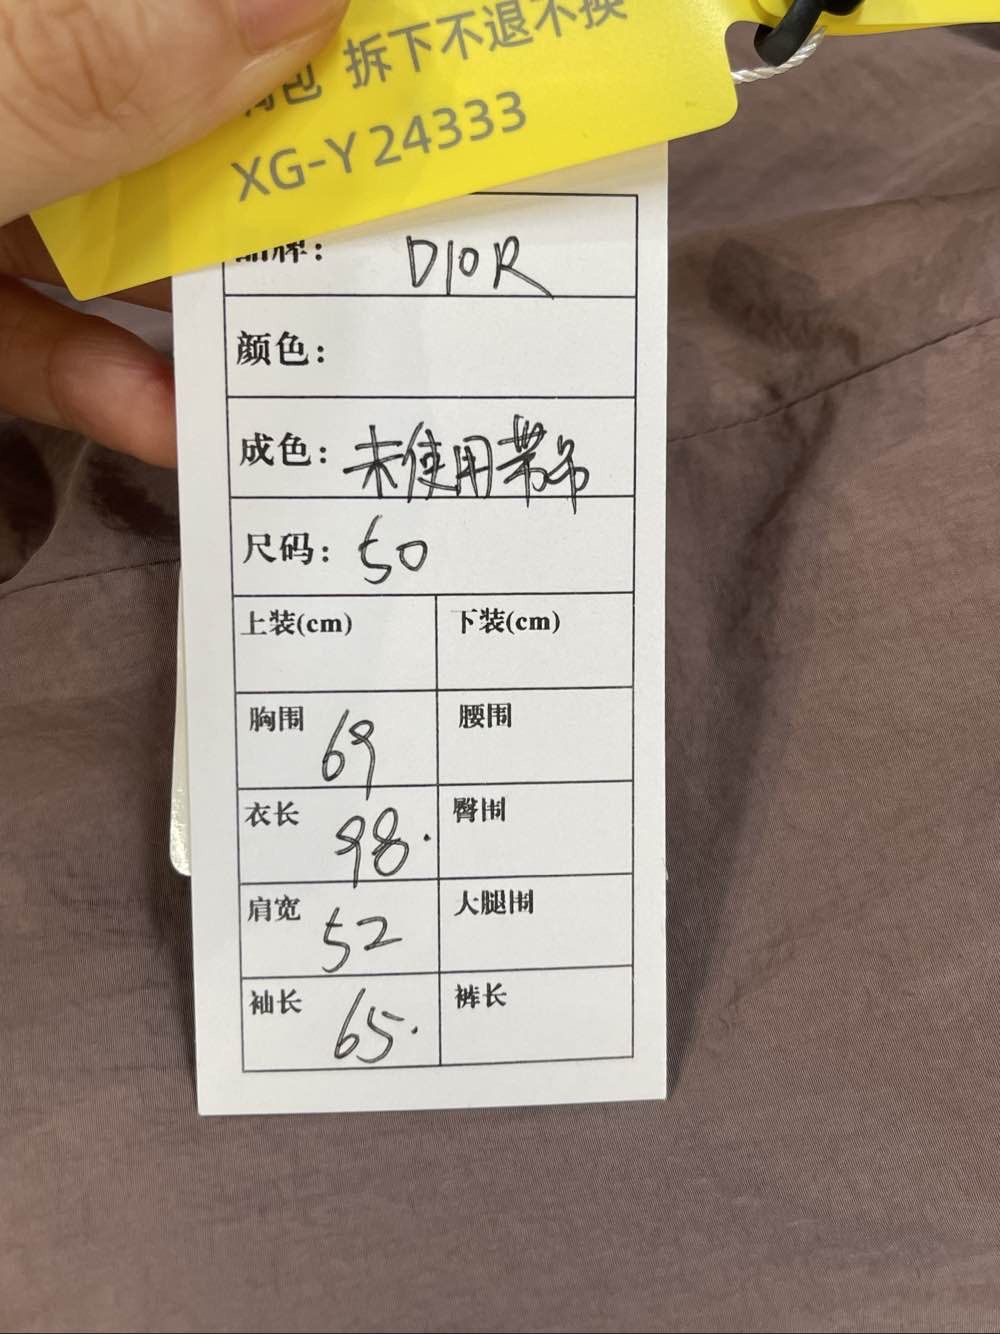 包 拆下不退不换
XG-Y 24333
品牌: DIOR
颜色:
成色: 未使用带吊
尺码: 50
上装(cm) 下装(cm)
胸围 69 腰围
衣长 98. 臀围
肩宽 52 大腿围
袖长 65. 裤长